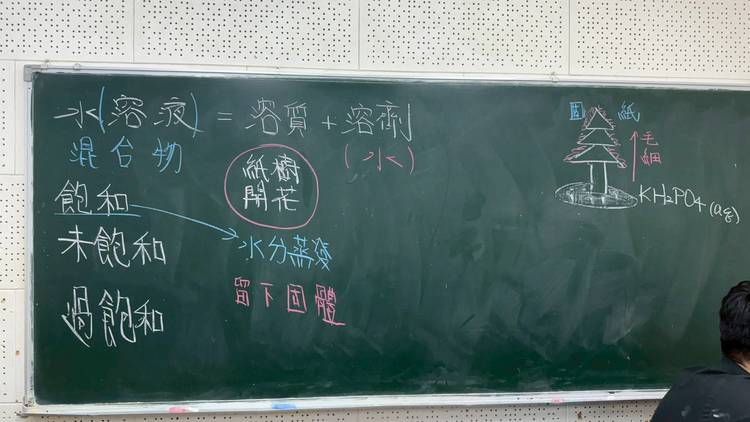 水(溶液) = 溶質 + 溶劑
混合物
(水)
紙樹
開花
飽和
水分蒸發
未飽和
留下固體
過飽和
固 紙
毛細
KH₂PO₄(aq)